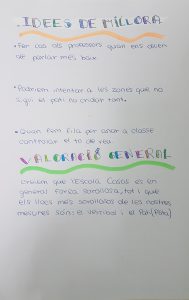 IDEES DE MILLORA
• Fer cas als professors quan ens diuen
de parlar més baix.
• Podríem intentar a les zones que no
sigui el pati no cridar tant.
• Quan fem fila per anar a classe
controlar el to de veu.
VALORACIÓ GENERAL
Creiem que l'Escola Casas és en
general força sorollosa, tot i que
els llocs més sorollosos de les nostres
mesures són: el vestíbul i el Pati (Pista)